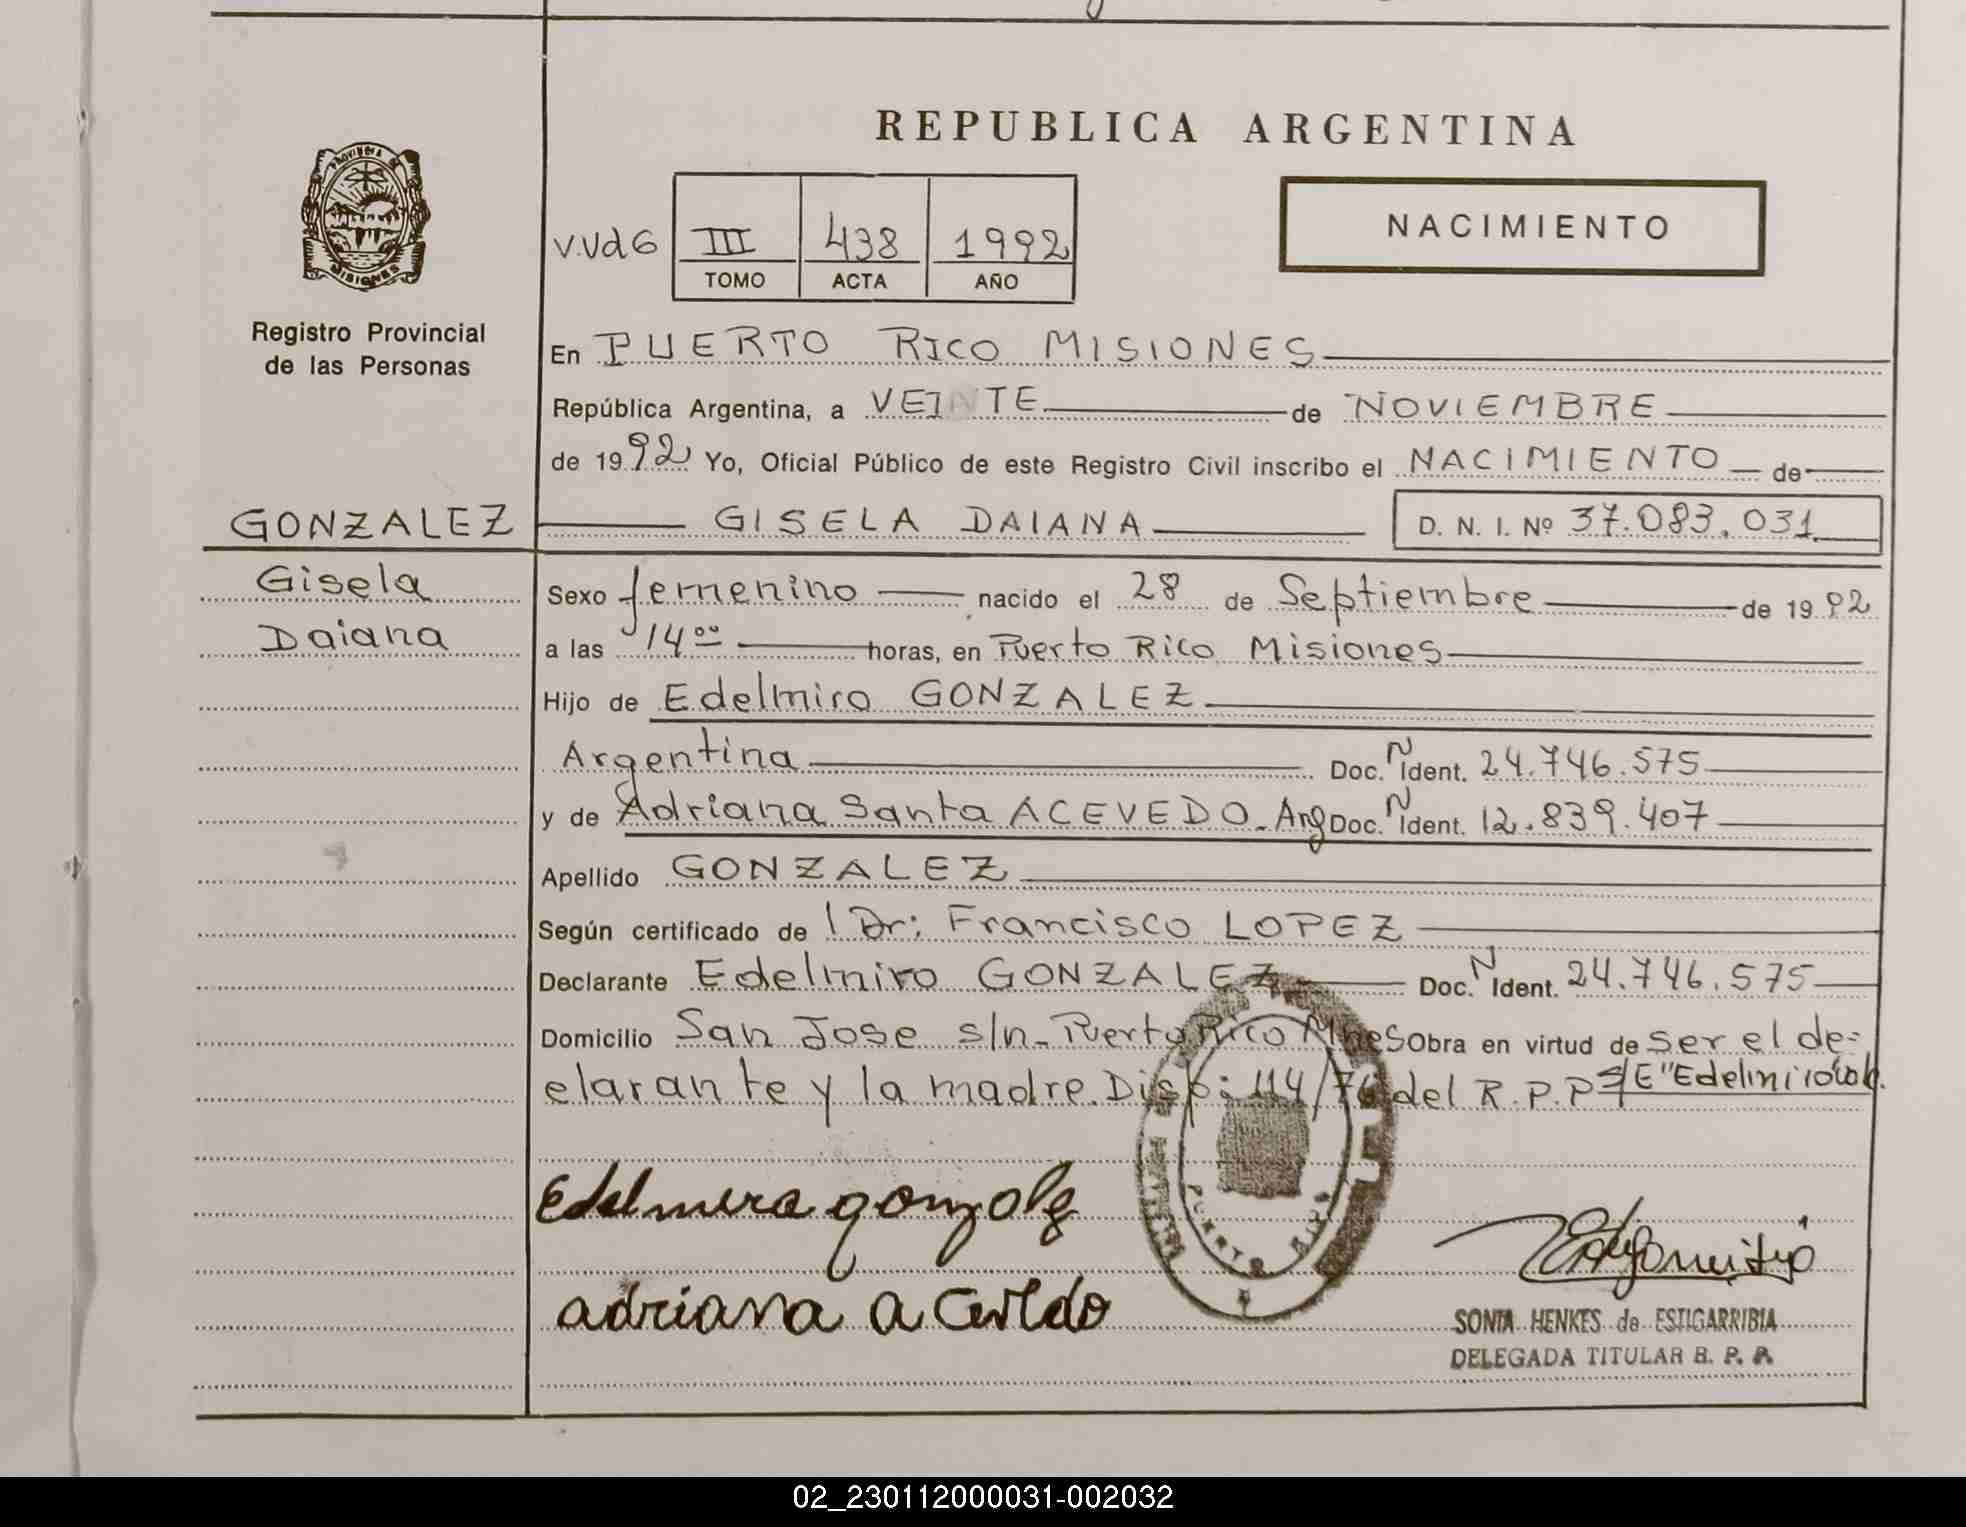 REPUBLICA ARGENTINA
PROVINCIA DE
MISIONES
Registro Provincial
de las Personas
NACIMIENTO
III 438 1992
TOMO ACTA AÑO
En PUERTO RICO MISIONES
República Argentina, a VEINTE de NOVIEMBRE
de 1992 Yo, Oficial Público de este Registro Civil inscribo el NACIMIENTO de
GONZALEZ GISELA DAIANA D. N. I. Nº 37.083.031
Gisela
Daiana
Sexo femenino nacido el 28 de Septiembre de 1992
a las 14 00 horas, en Puerto Rico Misiones
Hijo de Edelmiro GONZALEZ
Argentina Doc. N Ident. 24.746.575
y de Adriana Santa ACEVEDO. Arg Doc. N Ident. 12.839.407
Apellido GONZALEZ
Según certificado de Dr: Francisco LOPEZ
Declarante Edelmiro GONZALEZ Doc. N Ident. 24.746.575
Domicilio San Jose s/n. Puerto Rico Mnes Obra en virtud de ser el de=
clarante y la madre. Disp: 114/76 del R.P.P S/E "Edelmiro
PUERTO RICO
Edelmiro gonzalez
adriana acevedo
SONIA HENKES de ESTIGARRIBIA
DELEGADA TITULAR R. P. P.
02_230112000031-002032